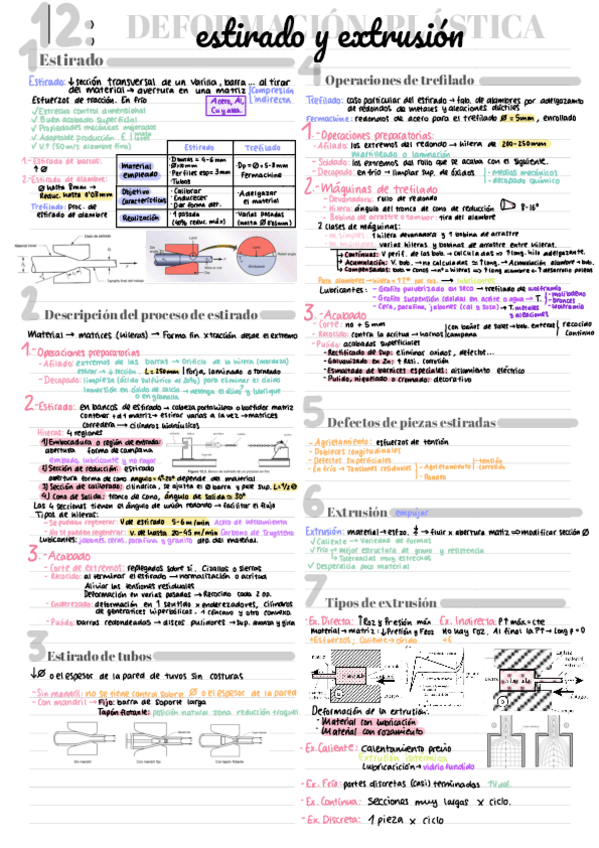 12:
DEFORMACIÓN PLÁSTICA
estirado y extrusión
1 Estirado
Estirado: ↓ sección transversal de un varilla, barra... al tirar
del material → avertura en una matriz
Compresión
Indirecta
Esfuerzos de tracción. En frío
Acero, Al,
Cu y aleac.
✓ Extremo control dimensional
✓ Buen acabado superficial
✓ Propiedades mecánicas mejoradas
✓ Adaptable producción
✓ V↑ (50m/s alambre fino)
1.-Estirado de barras:
↑ Ø
2.-Estirado de alambre:
Ø hasta 8mm →
Reduc. hasta 0'03mm
Trefilado: proc. de
estirado de alambre
Estirado
Trefilado
Material
empleado
· Perfiles esp = 3mm
· Tubos
· Dp = Ø = 5-8mm
Fermachine
Objetivo
Características
· Calibrar
· Endurecer
· Dar forma det.
· Adelgazar
el material
Realización
1 pasada
(40% reduc máx)
Varias pasadas
2 Descripción del proceso de estirado
Material → matrices (hileras) → Forma fin x tracción desde el extremo
1.-Operaciones preparatorias
- Afilado: extremos de las barras → Orificio de la hilera (mordaza)
estirar → ↓ sección. L = 250mm | Forja, laminado o torneado
- Decapado: limpieza (ácido sulfúrico al 20%) para eliminar el óxido
Inmersión en óxido de calcio
o en granalla
2.-Estirado: en bancos de estirado
contener ≠ d ≠ matriz → estirar varias a la vez → matrices
corredera → cilindros hidráulicos
Hileras: 4 regiones
1) Embocadura o región de entrada:
abertura forma de campana
embuda, lubricante y no rayar
2) Sección de reducción: estirado
abertura forma de cono ángulo = 4º-20º depende del material
3) Sección de calibrado: cilíndrica, se ajusta el Ø barra y pule sup. L = ½ Ø
4) Cono de salida: tronco de cono, ángulo de salida ≈ 30º
Las 4 secciones tienen el ángulo de unión redondo → facilitar el flujo
Tipos de hileras:
- Se pueden regenerar: V. de estirado 5-6 m/min Acero de Herramienta
- No se pueden regenerar: v. de hasta 20-45 m/min Carburo de Tungsteno
Lubricantes: jabones, ceras, parafina y granito dep. del material.
3.-Acabado
- Corte de extremos: replegados sobre sí. Cizallas o sierras
- Recocido: al terminar el estirado → normalización o acritud
Aliviar las tensiones residuales
Deformación en varias pasadas → Recocido cada 2 op.
- Enderezado: deformación en 1 sentido x enderezadores, cilindros
de generatrices hiperbólicas. 1 cóncavo y otro convexo.
- Pulido: barras redondeadas → discos pulidores → Sup. avanza y gira
3 Estirado de tubos
↓ Ø o el espesor de la pared de tuvos sin costuras
- Sin mandril: no se tiene control sobre Ø o el espesor de la pared
- Con mandril → Fijo: barra de soporte larga
Tapón flotante: posición natural zona reducción troquel.
Sin mandril
Con mandril fijo
Con tapón flotante
4 Operaciones de trefilado
Trefilado: caso particular del estirado → fab. de alambres por adelgazamto
de redondos de metales y aleaciones dúctiles
Fermachine: redondos de acero para el trefilado Ø = 5mm, enrollado
1.-Operaciones preparatorias:
- Afilado: los extremos del redondo → hilera de 200-250mm
Martilleado o laminación
- Soldado: los extremos del rollo que se acaba con el siguiente.
- Decapado: en frío → limpiar sup. de óxidos
- medios mecánicos
- decapado químico
2.-Máquinas de trefilado
- Devanadora: rollo de redondo
- Hilera: ángulo del tronco de cono de reducción 8º-16º
- Bobina de arrastre o tambor: tira del alambre
2 clases de máquinas:
- M. simples: 1 hilera devanadora y 1 bobina de arrastre
- M. múltiples: varias hileras y bobinas de arrastre entre hileras.
Continuas: V perif. de las bob. → calculadas ⇒ ↑ long. hilo adelgazante.
Acumulación: V. bob. → no calculadas
Lubricantes: - Grafito pulverizado en seco → trefilado de wolframio
- molibdeno
- Grafito suspensión coloidal en aceite o agua → T.
- bronces
- Wolframio
- Cera, parafina, jabones (cal y soda) → T. metales
y aleaciones
3.-Acabado
- Corte: no + 5mm
- Recocido: contra la acritud → hornos campana
recocido
continuo
- Pulido: acabados superficiales
- Rectificado de Sup: eliminar óxidos, defectos...
- Galvanizado en Zn: ↑ Resi. corrosión
- Esmaltado de barnices especiales: aislamiento eléctrico
- Pulido, niquelado o cromado: decorativo
5 Defectos de piezas estiradas
- Agrietamiento: esfuerzos de tensión
- Dobleces longitudinales
- Defectos Superficiales
- En frío → Tensiones residuales
- Agrietamiento
- tensión
- corrosión
- Pandeo
6 Extrusión empujar
Extrusión: material → esfzo. → fluir x abertura matriz ⇒ modificar sección Ø
✓ Caliente → Variedad de formas
✓ Frío → Mejor estructura de grano y resistencia
→ Tolerancias muy estrechas
✓ Desperdicia poco material
7 Tipos de extrusión
- Ex. Directa: ↑Roz y Presión máx
Material → matriz: ↓ Presión y Froz
+Esfuerzos; Caliente → óxido
Ex. Indirecta: P↑ máx = cte
No hay Foz. Al final la P↑ → Long p = 0
Deformación de la extrusión:
- Material con lubricación
- Material con rozamiento
- Ex. Caliente: Calentamiento previo
Extrusión isotérmica
Lubricación → vidrio fundido
- Ex. Fría: partes discretas (casi) terminadas
- Ex. Contínua: Secciones muy largas x ciclo.
- Ex. Discreta: 1 pieza x ciclo